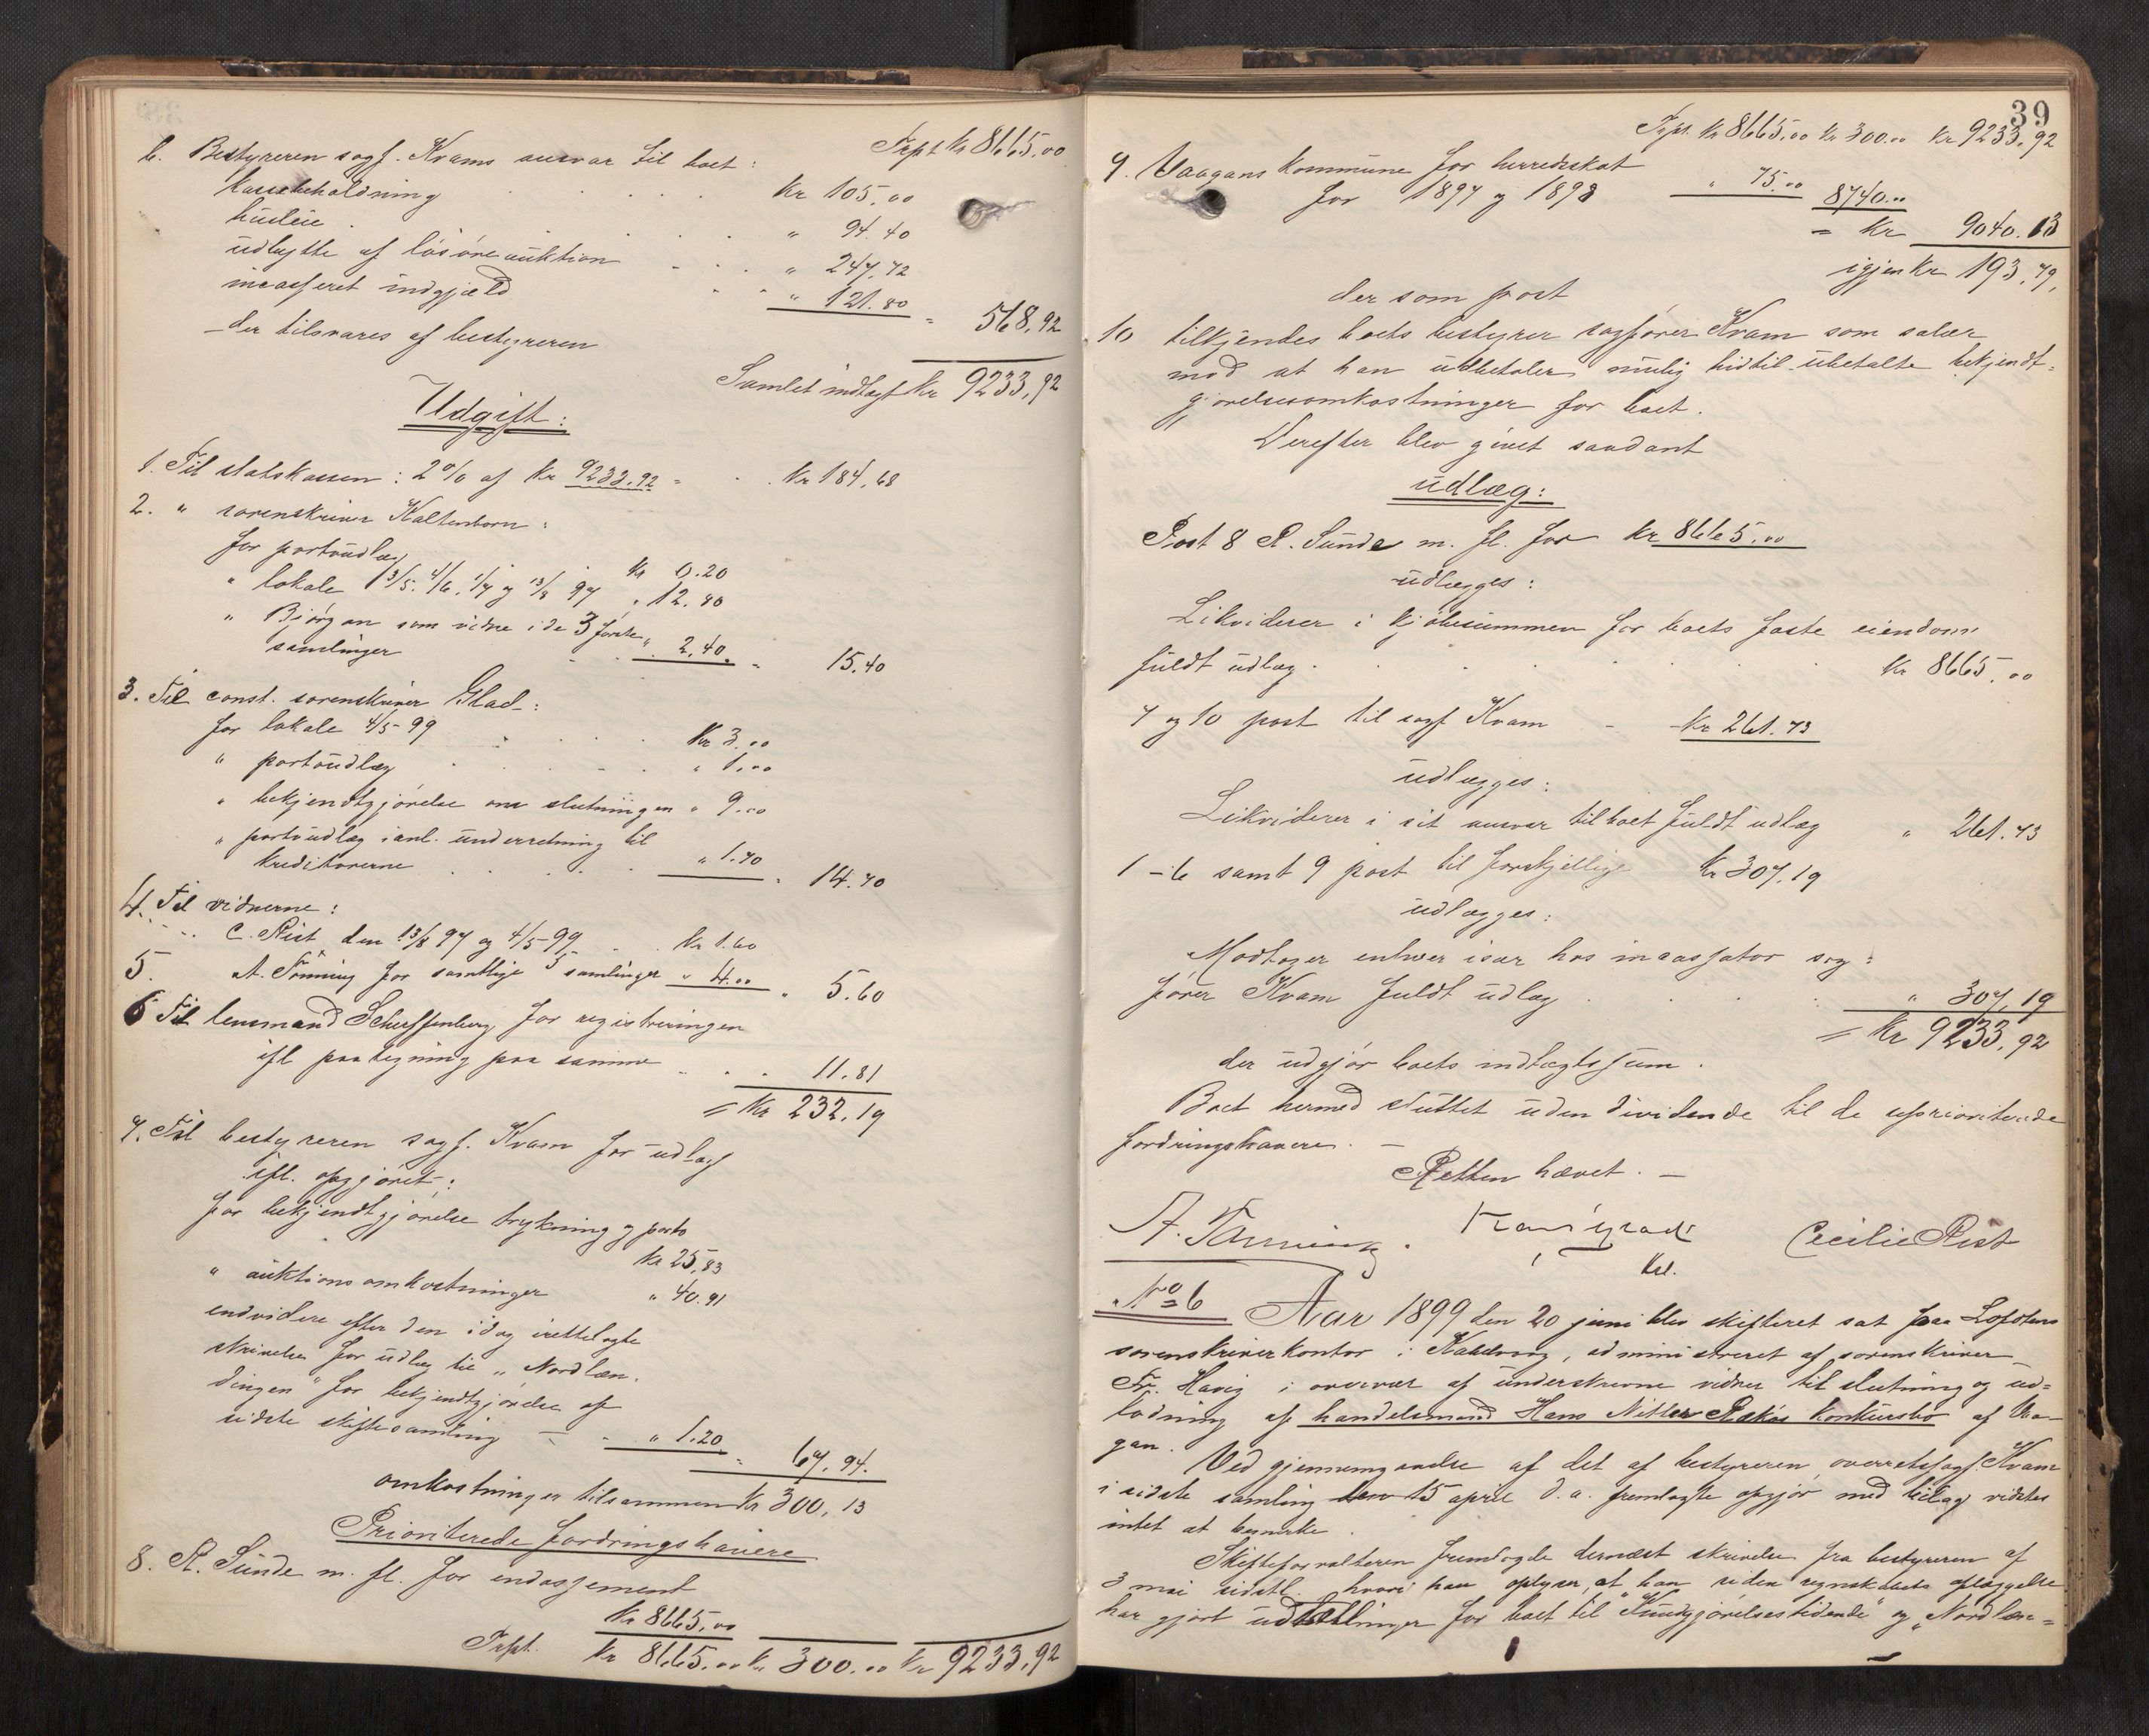 Trpt Kr 8665,00
b. Bestyreren sagf. Kvams ansvar til boet:
kassebeholdning . . . . Kr 105,00
husleie . . . . " 94.40
udbytte af løsøreauktion . . . " 247,72
incasseret indgjæld . . . " 121.80 = 568,92
der tilsvares af bestyreren
Samlet indtægt Kr 9233,92
Udgift:
1. Til statskassen: 2% af Kr 9233.92 = . . Kr 184,68
2. " sorenskriver Kaltenborn:
for portoudlæg Kr 0.20
" lokale 13/5. 4/6. 1/7 og 13/8 97 " 12.80
" Bjørgan som vidne i de 3 første
samlinger . . " 2,40. = 15.40
3. Til const. sorenskriver Glad:
for lokale 4/5-99 . . . . Kr 3,00
" portoudlæg . . . . " 1,00
" bekjendtgjørelse om slutningen " 9.00
" portoudlæg i anl. underretning til
kreditorerne . . . . " 1.70 = 14.70
4. Til vidnerne:
C. Rist den 13/8 97 og 4/5-99 . . Kr 1.60
5. A. Tønning for samtlige 5 samlinger " 4.00 " 5.60
6 Til lensmand Scheffenberg for registreringen
ifl paategning paa samme . . . 11.81
= Kr 232,19
7. Til bestyreren sagf. Kvam for udlæg
ifl. opgjøret:
for bekjendtgjørelse trykning og porto
Kr 25,83
" auktionsomkostninger " 40.91
endvidere efter den idag irettelagte
skrivelse for udlæg til "Nordlæn-
dingen" for bekjendtgjørelse af
sidste skiftesamling – . " 1.20 = 67,94.
omkostninger tilsammen Kr 300,13
Prioriterede fordringshavere
8. R. Sunde m. fl. for endossement
Kr 8665,00
Trpt. Kr 8665,00 Kr 300.00 Kr 9233,92
39
Trpt. Kr 8665,00 Kr 300.00 Kr 9233,92
9. Vaagans kommune for herredsskat
for 1897 og 1898 " 75.00 8740.00
= Kr 9040.13
igjen Kr 193,79,
der som post
10 tilkjendes boets bestyrer sagfører Kvam som salær
mod at han udbetaler mulig hidtil ubetalte bekjendt-
gjørelsesomkostninger for boet.
Derefter blev givet saadant
udlæg:
Post 8 R. Sunde m. fl. for Kr 8665,00
udlægges:
Likviderer i kjøbesummen for boets faste eiendom
fuldt udlæg . . . . . . Kr 8665,00
7 og 10 post til sagf Kvam – Kr 261.73
udlægges:
Likviderer i sit ansvar til boet fuldt udlæg " 261.73
1-6 samt 9 post til forskjellige Kr 307,19
udlægges:
Modtager enhver især hos incassator sag-
fører Kvam fuldt udlæg . . . " 307,19
= Kr 9233,92
der udgjør boets indtægtssum.
Boet hermed sluttet uden dividende til de uprioriterede
fordringshavere. –
Retten hævet. –
A. Tønning. Cecilie Rist
No 6 Aar 1899 den 20 juni blev skifteret sat paa Lofotens
sorenskriverkontor i Kabelvaag, administreret af sorenskriver
Fr. Havig i overvær af underskrevne vidner til slutning og ud-
lodning af handelsmand Hans Nitter Røkås konkursbo af Vaa-
gan.
Ved gjennemgaaelse af det af bestyreren, overretssagf. Kvam
i sidste samling den 15 april d. a. fremlagte opgjør med bilag vidstes
intet at bemerke.
Skifteforvalteren fremlagde dernæst skrivelse fra bestyreren af
3 mai sidstl. hvori han oplyser, at han siden regnskabets aflæggelse
har gjort udtællinger for boet til "Kundgjørelsestidende" og "Nordlæn-